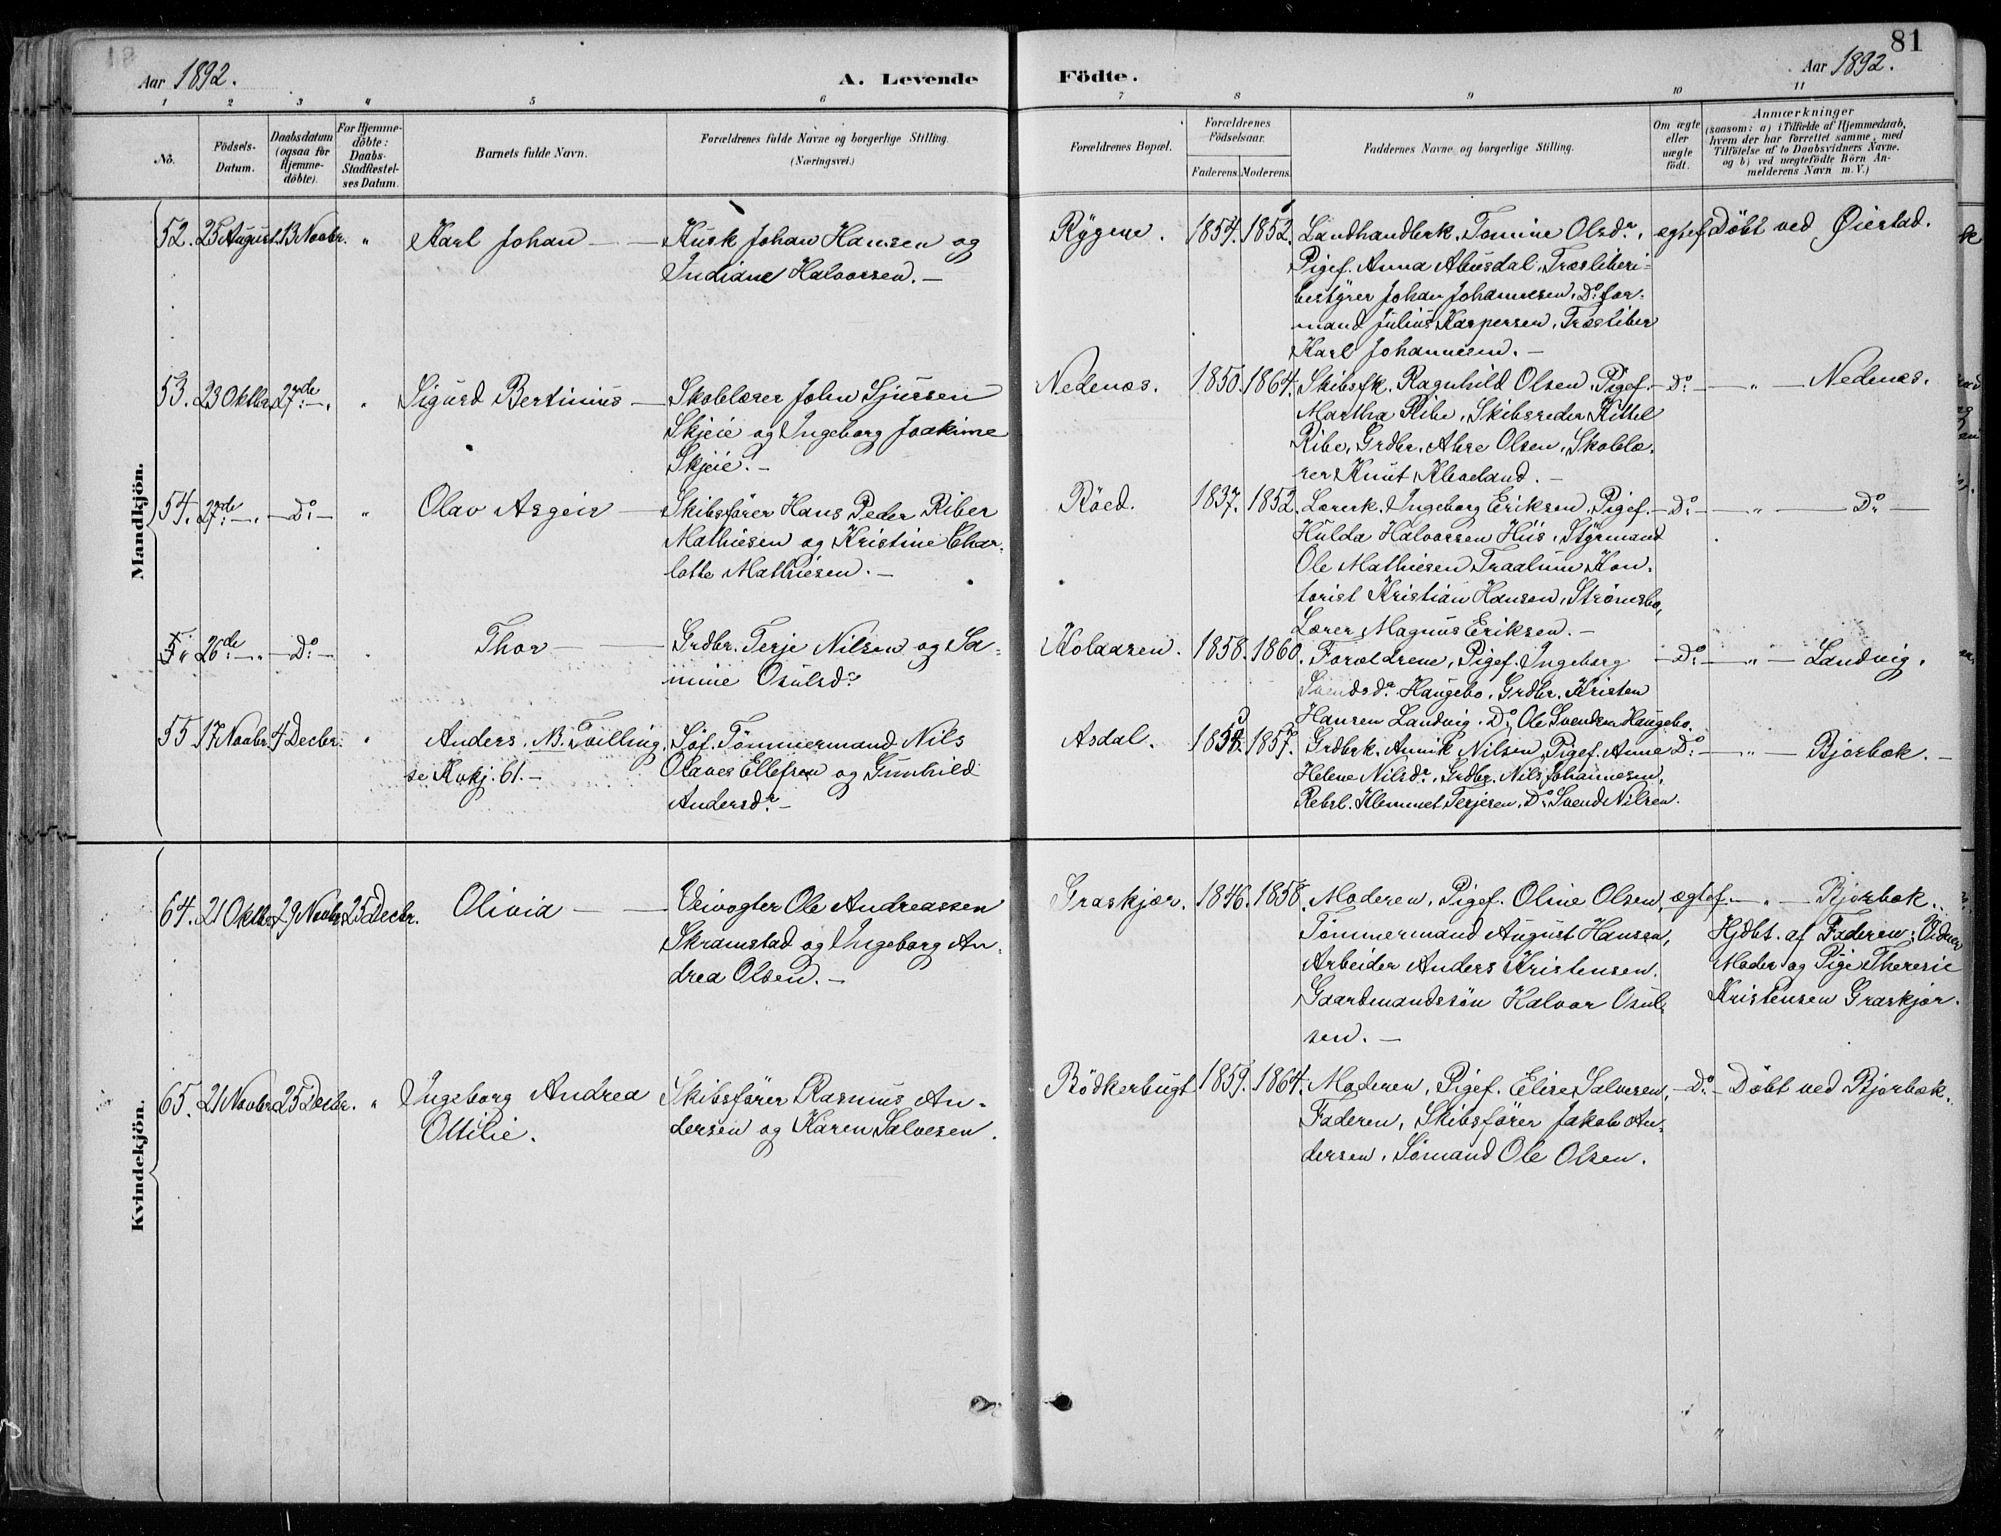 81
Aar 1892.
A. Levende Födte.
Aar 1892.
1 2 3 4 5 6 7 8 9 10 11
No.
Födsels-Datum.
Daabsdatum (ogsaa for Hjemme-döbte).
For Hjemme-döbte: Daabs-Stadfæstel-ses Datum.
Barnets fulde Navn.
Forældrenes fulde Navne og borgerlige Stilling.
(Næringsvei.)
Forældrenes Bopæl.
Forældrenes Födselsaar.
Faderens. Moderens.
Faddernes Navne og borgerlige Stilling.
Om ægte eller uægte födt.
Anmærkninger
(saasom: a) i Tilfælde af Hjemmedaab,
hvem der har forrettet samme, med
Tilföielse af to Daabsvidners Navne.
og b) ved uægtefödte Börn An-
melderens Navn m. V.)
Mandkjön.
52. 25 August. 13 Novbr. " Karl Johan — Kusk Johan Hansen og
Indiane Halvorsen. —
Rygene. 1854. 1852. Landhandlerk. Tomine Olsdr. ægtef. Döbt ved Øiestad.
Pigef. Anna Abusdal, Træsliberi-
bestyrer Johan Johannesen, Do. for-
mand Julius Kaspersen, Træsliber
Karl Johannesen. —
53. 23 Oktbr. 27de — " Sigurd Bertinius — Skolelærer John Sjursen
Skjeie og Ingeborg Joakime
Skjeie. —
Nedenæs. 1850. 1864. Skibsfk. Ragnhild Olsen, Pigef. — Do — " — Nedenæs.
Martha Ribe, Skibsreder Kittel
Ribe, Grdbr. Olsen, Skolelæ-
rer Knut Kleveland. —
54. 27de — " — Do — " Olav Asgeir — Skibsfører Hans Peder Riber
Mathiesen og Kristine Char-
lotte Mathiesen. —
Röed. 1837. 1852. Lærerk. Ingeborg Eriksen, Pigef. — Do — " — Do —
Hulda Halvorsen His, Styrmand
Ole Mathiesen Traalum, Kon-
torist Kristian Hansen, Strømsbo,
Lærer Magnus Eriksen. —
26de — " — Do — Thor — Grdbr. Terje Nilsen og Sa-
mine Osulsdr.
Holaaren. 1858. 1860. Forældrene, Pigef. Ingeborg — Do — " — Landvig.
Svendsdr. Haugebo, Grdbr. Kristen
Hansen Landvig, Do. Ole Svendsen Haugebo.
55. 17 Novbr. 4 Decbr. " Anders. NB. Tvilling, Söf. Tömmermand Nils
se Kvkj. 61. — Olaves Ellefsen og Gunhild
Andersdr. —
Asdal. 1857. Grdbrk. Annik Nilsen, Pigef. Anne Do — " — Bjorbæk. —
Helene Nilsdr., Grdbr. Nils Johannesen,
Rebsl. Klemmet Terjesen, Do. Svend Nilsen.
Kvindekjön.
64. 21 Oktbr. 29 Novbr. 25 Decbr. Olivia — Veivogter Ole Andreassen
Skramstad og Ingeborg An-
drea Olsen. —
Graskjær. 1846. 1858. Moderen, Pigef. Oline Olsen, ægtef. — " — Bjorbæk.
Tömmermand August Hansen, Hjdbt. af Faderen;
Arbeider Anders Kristensen. Moder og Pige Theresie
Gaardmandssön Halvor Osul- Kristensen Graskjær.
sen. —
65. 21 Novbr. 25 Decbr. " Ingeborg Andrea Skibsfører Rasmus An-
Ottilie. dersen og Karen Salvesen.
Bödkerbugt 1859. 1864. Moderen, Pigef. Elise Salvesen, — Do — Döbt ved Bjorbæk.
Faderen, Skibsfører Jakob An-
dersen, Sömand Ole Olsen.